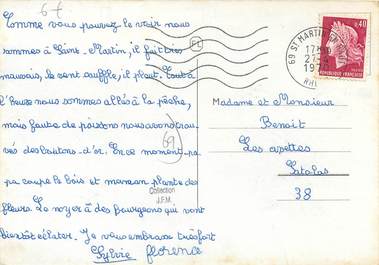 67
Comme vous pouvez le voir nous
sommes à Saint-Martin, il fait très
mauvais, le vent souffle, il pleut. Tout à
l'heure nous sommes allés à la pêche,
mais faute de poissons nous avons trou-
vés des boutons-d'or. En ce moment pa-
pa coupe le bois et maman plante des
fleurs. Le noyer a des bourgeons qui vont
bientôt éclater. Je vous embrasse très fort
Sylvie Florence
69
Collection
J.F.M.
69 ST MARTIN
17H
27-
RH
0,40
REPUBLIQUE FRANÇAISE
Madame et Monsieur
Benoit
Les azettes
Satolas
38